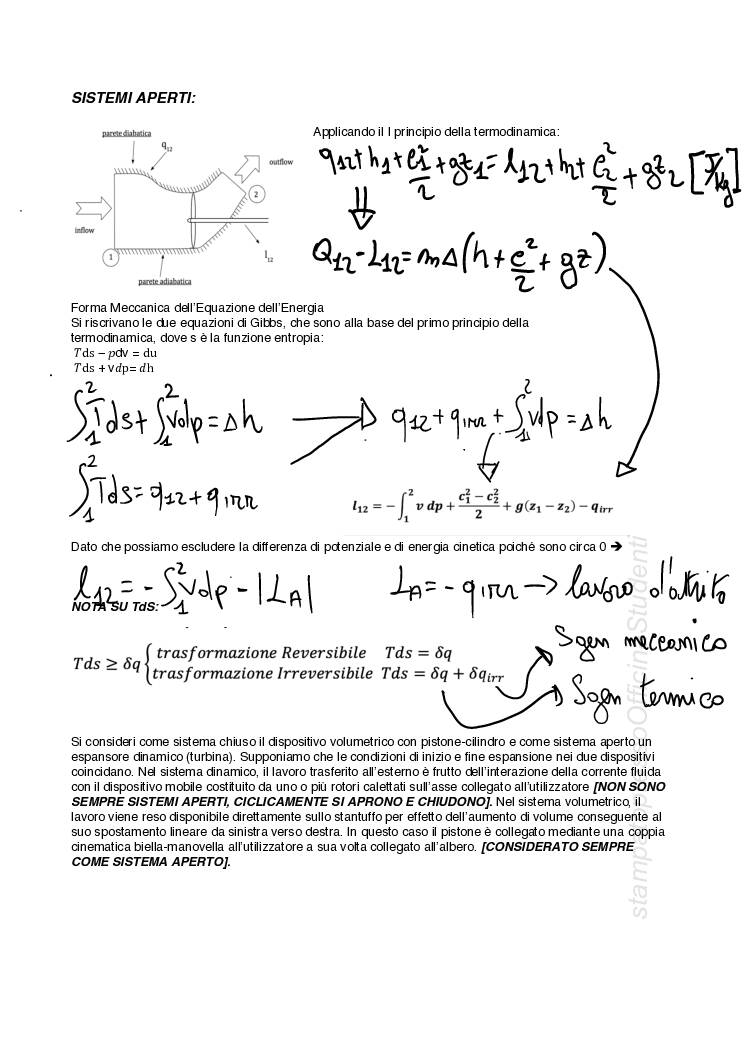 SISTEMI APERTI:
parete diabatica
q12
outflow
2
inflow
1
l12
parete adiabatica
Applicando il I principio della termodinamica:
q12 + h1 + c1²/2 + gz1 = l12 + h2 + c2²/2 + gz2 [J/kg]
⇓
Q12 - L12 = m Δ(h + c²/2 + gz)
Forma Meccanica dell'Equazione dell'Energia
Si riscrivano le due equazioni di Gibbs, che sono alla base del primo principio della
termodinamica, dove s è la funzione entropia:
Tds – pdv = du
Tds + vdp= dh
∫₁² Tds + ∫₁² vdp = Δh → q12 + qirr + ∫₁² vdp = Δh
∫₁² Tds = q12 + qirr
l12 = − ∫₁² v dp + (c1² − c2²)/2 + g(z1 − z2) − qirr
Dato che possiamo escludere la differenza di potenziale e di energia cinetica poiché sono circa 0 ➔
l12 = - ∫₁² vdp - |LA| LA = - qirr → lavoro d'attrito
NOTA SU TdS:
Sgen meccanico
Tds ≥ δq { trasformazione Reversibile Tds = δq
trasformazione Irreversibile Tds = δq + δqirr
Sgen termico
Si consideri come sistema chiuso il dispositivo volumetrico con pistone-cilindro e come sistema aperto un
espansore dinamico (turbina). Supponiamo che le condizioni di inizio e fine espansione nei due dispositivi
coincidano. Nel sistema dinamico, il lavoro trasferito all'esterno è frutto dell'interazione della corrente fluida
con il dispositivo mobile costituito da uno o più rotori calettati sull'asse collegato all'utilizzatore [NON SONO
SEMPRE SISTEMI APERTI, CICLICAMENTE SI APRONO E CHIUDONO]. Nel sistema volumetrico, il
lavoro viene reso disponibile direttamente sullo stantuffo per effetto dell'aumento di volume conseguente al
suo spostamento lineare da sinistra verso destra. In questo caso il pistone è collegato mediante una coppia
cinematica biella-manovella all'utilizzatore a sua volta collegato all'albero. [CONSIDERATO SEMPRE
COME SISTEMA APERTO].